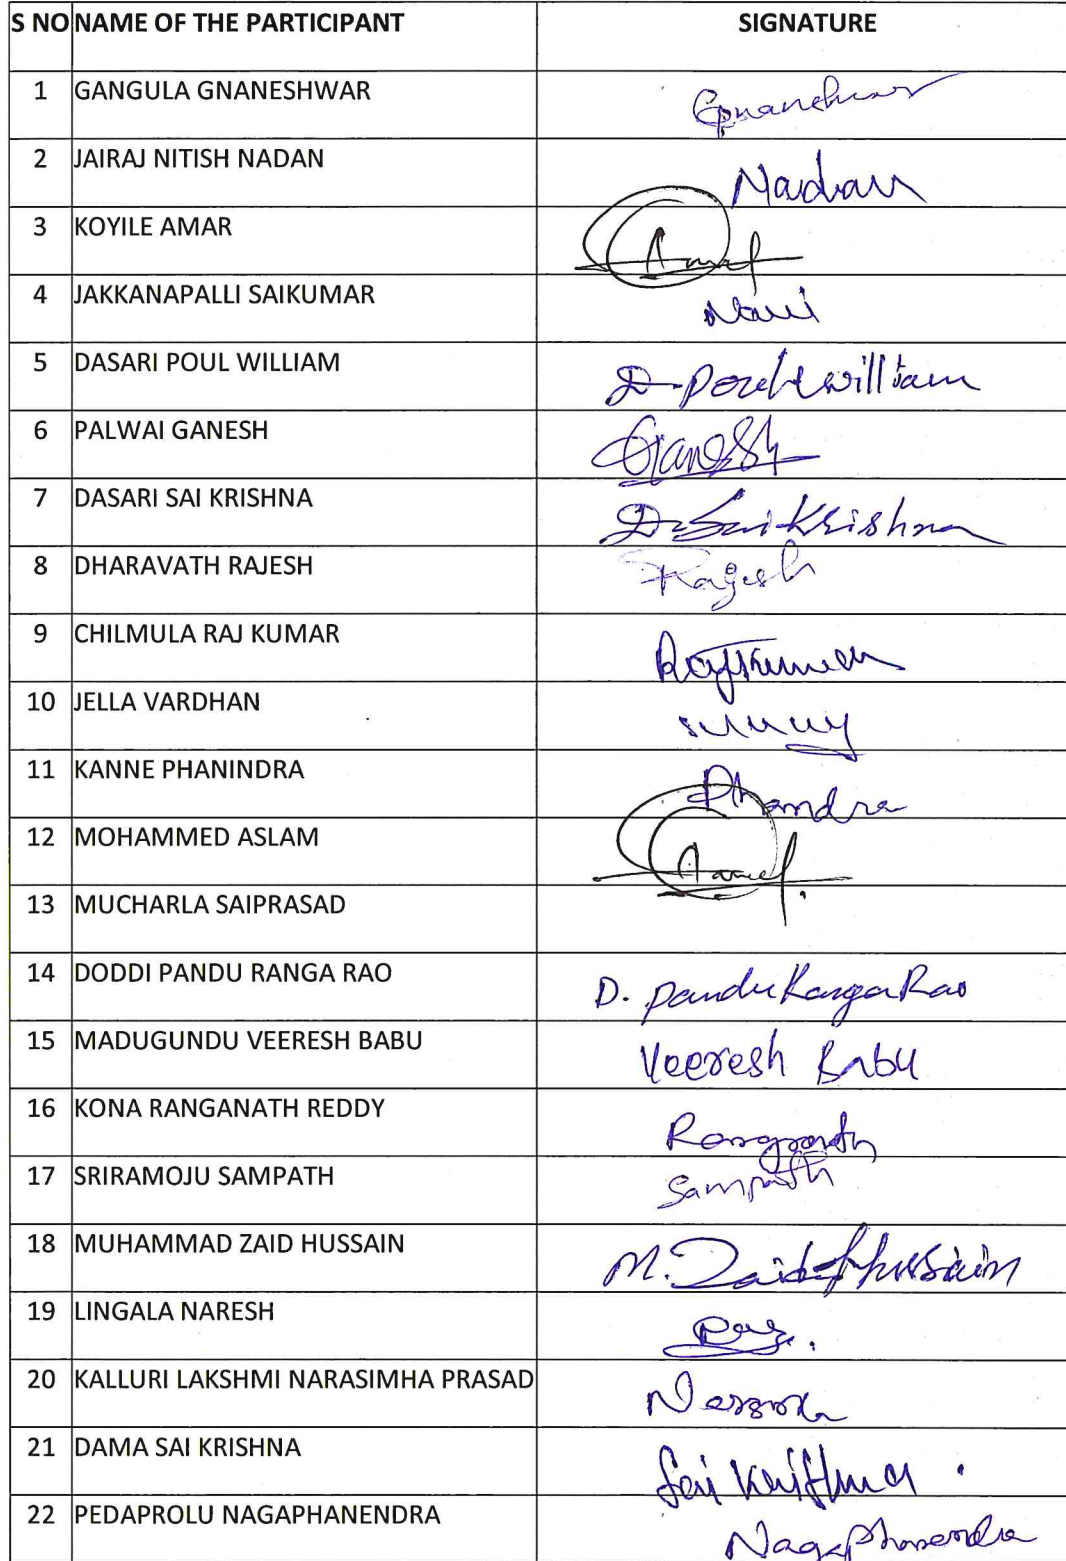 S NO NAME OF THE PARTICIPANT SIGNATURE
1 GANGULA GNANESHWAR Gnaneshwar
2 JAIRAJ NITISH NADAN Nadan
3 KOYILE AMAR Amar
4 JAKKANAPALLI SAIKUMAR
5 DASARI POUL WILLIAM D. Poul william
6 PALWAI GANESH Ganesh
7 DASARI SAI KRISHNA D. Sai Krishna
8 DHARAVATH RAJESH Rajesh
9 CHILMULA RAJ KUMAR Rajkumar
10 JELLA VARDHAN
11 KANNE PHANINDRA
12 MOHAMMED ASLAM
13 MUCHARLA SAIPRASAD
14 DODDI PANDU RANGA RAO D. Pandu Ranga Rao
15 MADUGUNDU VEERESH BABU Veeresh Babu
16 KONA RANGANATH REDDY
17 SRIRAMOJU SAMPATH Sampath
18 MUHAMMAD ZAID HUSSAIN M. Zaid hussain
19 LINGALA NARESH
20 KALLURI LAKSHMI NARASIMHA PRASAD
21 DAMA SAI KRISHNA Sai Krishna
22 PEDAPROLU NAGAPHANENDRA Nagaphanendra